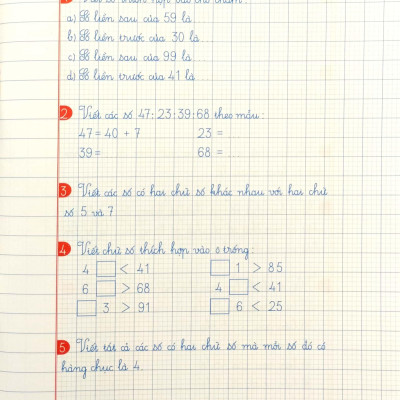 1 Viết số thích hợp vào chỗ chấm:
a) Số liền sau của 59 là
b) Số liền trước của 30 là
c) Số liền sau của 99 là
d) Số liền trước của 41 là
2 Viết các số 47; 23; 39; 68 theo mẫu:
47 = 40 + 7 23 =
39 = 68 =
3 Viết các số có hai chữ số khác nhau với hai chữ
số 5 và 7
4 Viết chữ số thích hợp vào ô trống:
4 < 41 1 > 85
6 > 68 4 < 41
3 > 91 6 < 25
5 Viết tất cả các số có hai chữ số mà mỗi số đó có
hàng chục là 4.